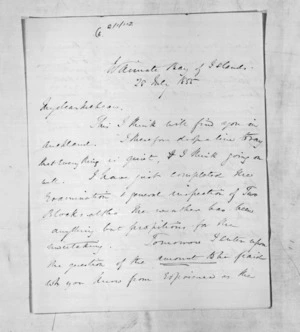 Waimate Bay of Islands
28 July 1855
My dear McLean,
This I think will find you in
Auckland. I therefore drop a line to say
that everything is quiet, & I think going on
well. I have just completed the
Examination & general inspection of Two
Blocks altho the weather has been
anything but propitious for the
undertaking. Tomorrow I enter upon
the question of the amount to be paid
wh you know from experience is the